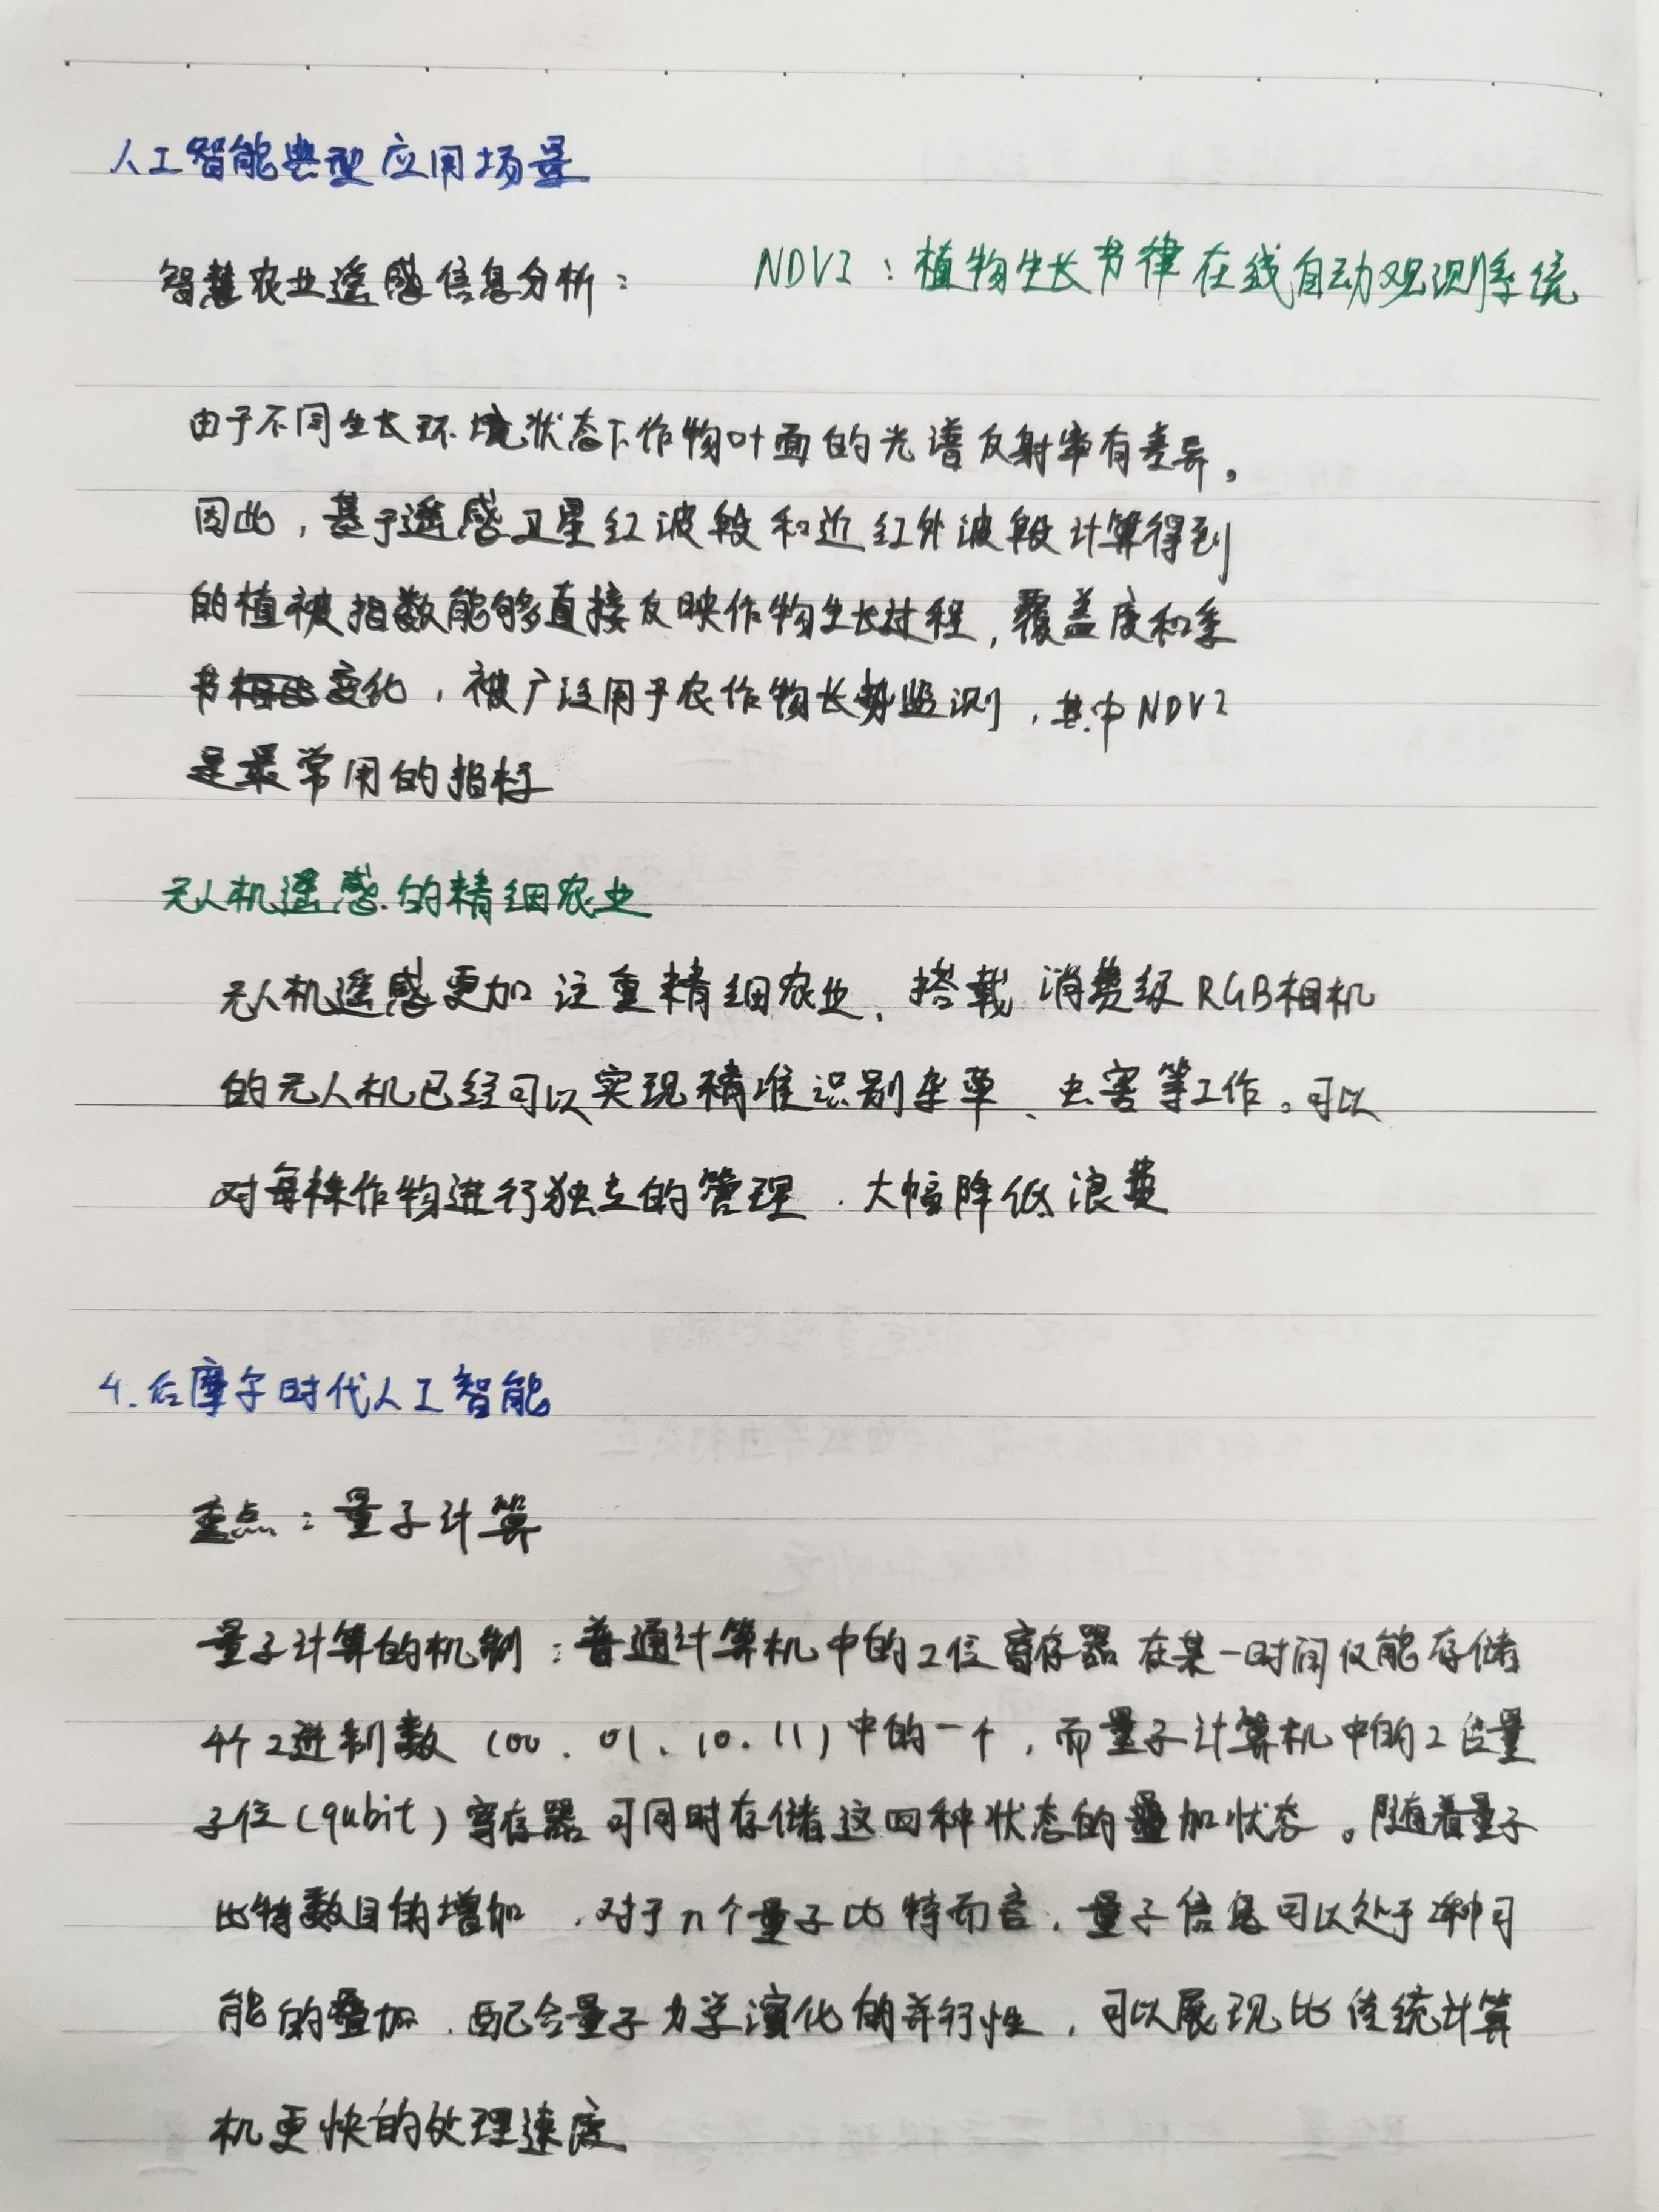 人工智能典型应用场景
智慧农业遥感信息分析： NDVI：植物生长节律在线自动观测系统
由于不同生长环境状态下作物叶面的光谱反射率有差异。
因此，基于遥感卫星红波段和近红外波段计算得到
的植被指数能够直接反映作物生长过程，覆盖度和季
节变化，被广泛用于农作物长势监测，其中NDVI
是最常用的指标
无人机遥感的精细农业
无人机遥感更加注重精细农业、搭载消费级RGB相机
的无人机已经可以实现精准识别杂草、虫害等工作。可以
对每株作物进行独立的管理，大幅降低浪费
4.后摩尔时代人工智能
重点：量子计算
量子计算的机制：普通计算机中的2位寄存器在某一时间仅能存储
4个2进制数（00、01、10、11）中的一个，而量子计算机中的2位量
子位（qubit）寄存器可同时存储这四种状态的叠加状态。随着量子
比特数目的增加，对于n个量子比特而言，量子信息可以处于2种可
能的叠加，配合量子力学演化的并行性，可以展现比传统计算
机更快的处理速度